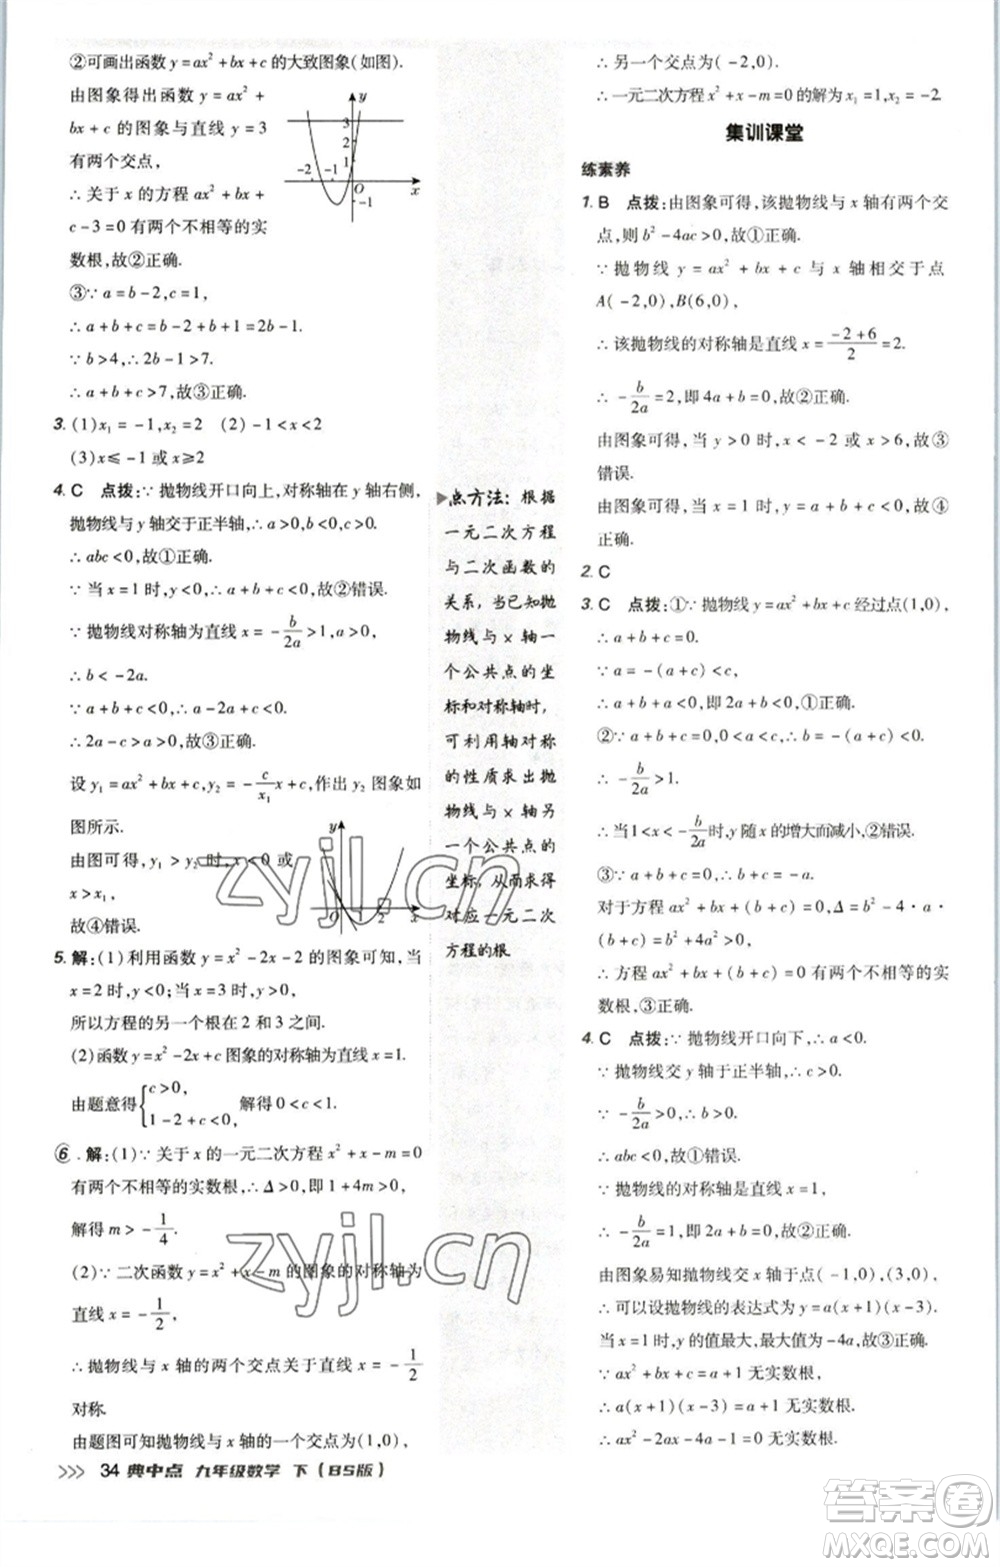 ②可画出函数 y=ax²+bx+c 的大致图象(如图).
由图象得出函数 y=ax²+
bx+c 的图象与直线 y=3
有两个交点,
∴关于 x 的方程 ax²+bx
+c-3=0 有两个不相等的实
数根,故②正确.
y
3
2
1
-2
-1
O
x
-1
③∵a=b-2,c=1,
∴a+b+c=b-2+b+1=2b-1.
∵b>4,∴2b-1>7.
∴a+b+c>7,故③正确.
3. (1)x₁=-1,x₂=2 (2)-1<x<2
(3)x≤-1或x≥2
4. C 点拨:∵抛物线开口向上,对称轴在 y 轴右侧,
抛物线与 y 轴交于正半轴,∴a>0,b<0,c>0.
∴abc<0,故①正确.
∵当 x=1时,y<0,∴a+b+c<0,故②错误.
∵抛物线对称轴为直线 x=-b/2a>1,a>0,
∴b<-2a.
∵a+b+c<0,∴a-2a+c<0.
∴2a-b>a+b+c.
∴2a-c>0,故③正确.
设 y₁=ax²+bx+c,y₂=-c/x₁ x+c,作出 y₂ 图象如
图所示.
由图可得,y₁>y₂时,x<0 或
x>x₁,
故④错误.
y
O
1
2
x
5. 解:(1)利用函数 y=x²-2x-2 的图象可知,当
x=2 时,y<0;当 x=3 时,y>0,
所以方程的另一个根在 2 和 3 之间.
(2)函数 y=x²-2x+c 图象的对称轴为直线 x=1.
由题意得{c>0, 1-2+c<0, 解得 0<c<1.
6. 解:(1)∵关于 x 的一元二次方程 x²+x-m=0
有两个不相等的实数根,∴Δ>0,即 1+4m>0,
解得 m>-1/4.
(2)∵二次函数 y=x²+x-m 的图象的对称轴为
直线 x=-1/2,
∴抛物线与 x 轴的两个交点关于直线 x=-1/2
对称.
由题图可知抛物线与 x 轴的一个交点为(1,0),
点方法:根据
一元二次方程
与二次函数的
关系,当已知抛
物线与×轴一
个公共点的坐
标和对称轴时,
可利用轴对称
的性质求出抛
物线与×轴另
一个公共点的
坐标,从而求得
对应一元二次
方程的根.
∴另一个交点为(-2,0).
∴一元二次方程 x²+x-m=0 的解为 x₁=1,x₂=-2.
集训课堂
练素养
1. B 点拨:由图象可得,该抛物线与 x 轴有两个交
点,则 b²-4ac>0,故①正确.
∵抛物线 y=ax²+bx+c 与 x 轴相交于点
A(-2,0),B(6,0),
∴该抛物线的对称轴是直线 x=(-2+6)/2=2.
∴-b/2a=2,即 4a+b=0,故②正确.
由图象可得,当 y>0 时,x<-2 或 x>6,故③
错误.
由图象可得,当 x=1 时,y=a+b+c<0,故④
正确.
2. C
3. C 点拨:①∵抛物线 y=ax²+bx+c 经过点(1,0),
∴a+b+c=0.
∵a<c,∴b=-(a+c)<0,
∴2a+b<0,①正确.
②∵a+b+c=0,0<a<c,
∴-b/2a>1.
∴当1<x<-b/2a时,y 随 x 的增大而减小,②错误.
③∵a+b+c=0,∴b+c=-a.
对于方程 ax²+bx+(b+c)=0,Δ=b²-4·a·
(b+c)=b²+4a²>0,
∴方程 ax²+bx+(b+c)=0 有两个不相等的
实数根,③正确.
4. C 点拨:∵抛物线开口向下,∴a<0.
∵抛物线交 y 轴于正半轴,∴c>0.
∵-b/2a>0,∴b>0.
∴abc<0,故①错误.
∵抛物线的对称轴是直线 x=1,
∴-b/2a=1,即 2a+b=0,故②正确.
由图象易知抛物线交 x 轴于点(-1,0),(3,0),
∴可以设抛物线的表达式为 y=a(x+1)(x-3).
当 x=1时,y 的值最大,最大值为-4a,故③正确.
∵ax²+bx+c=a+1 无实数根,
∴a(x+1)(x-3)=a+1 无实数根.
34 典中点 九年级数学 下(BS版)
zyjl.cn
zyjl.cn
答案圈
MXQE.COM